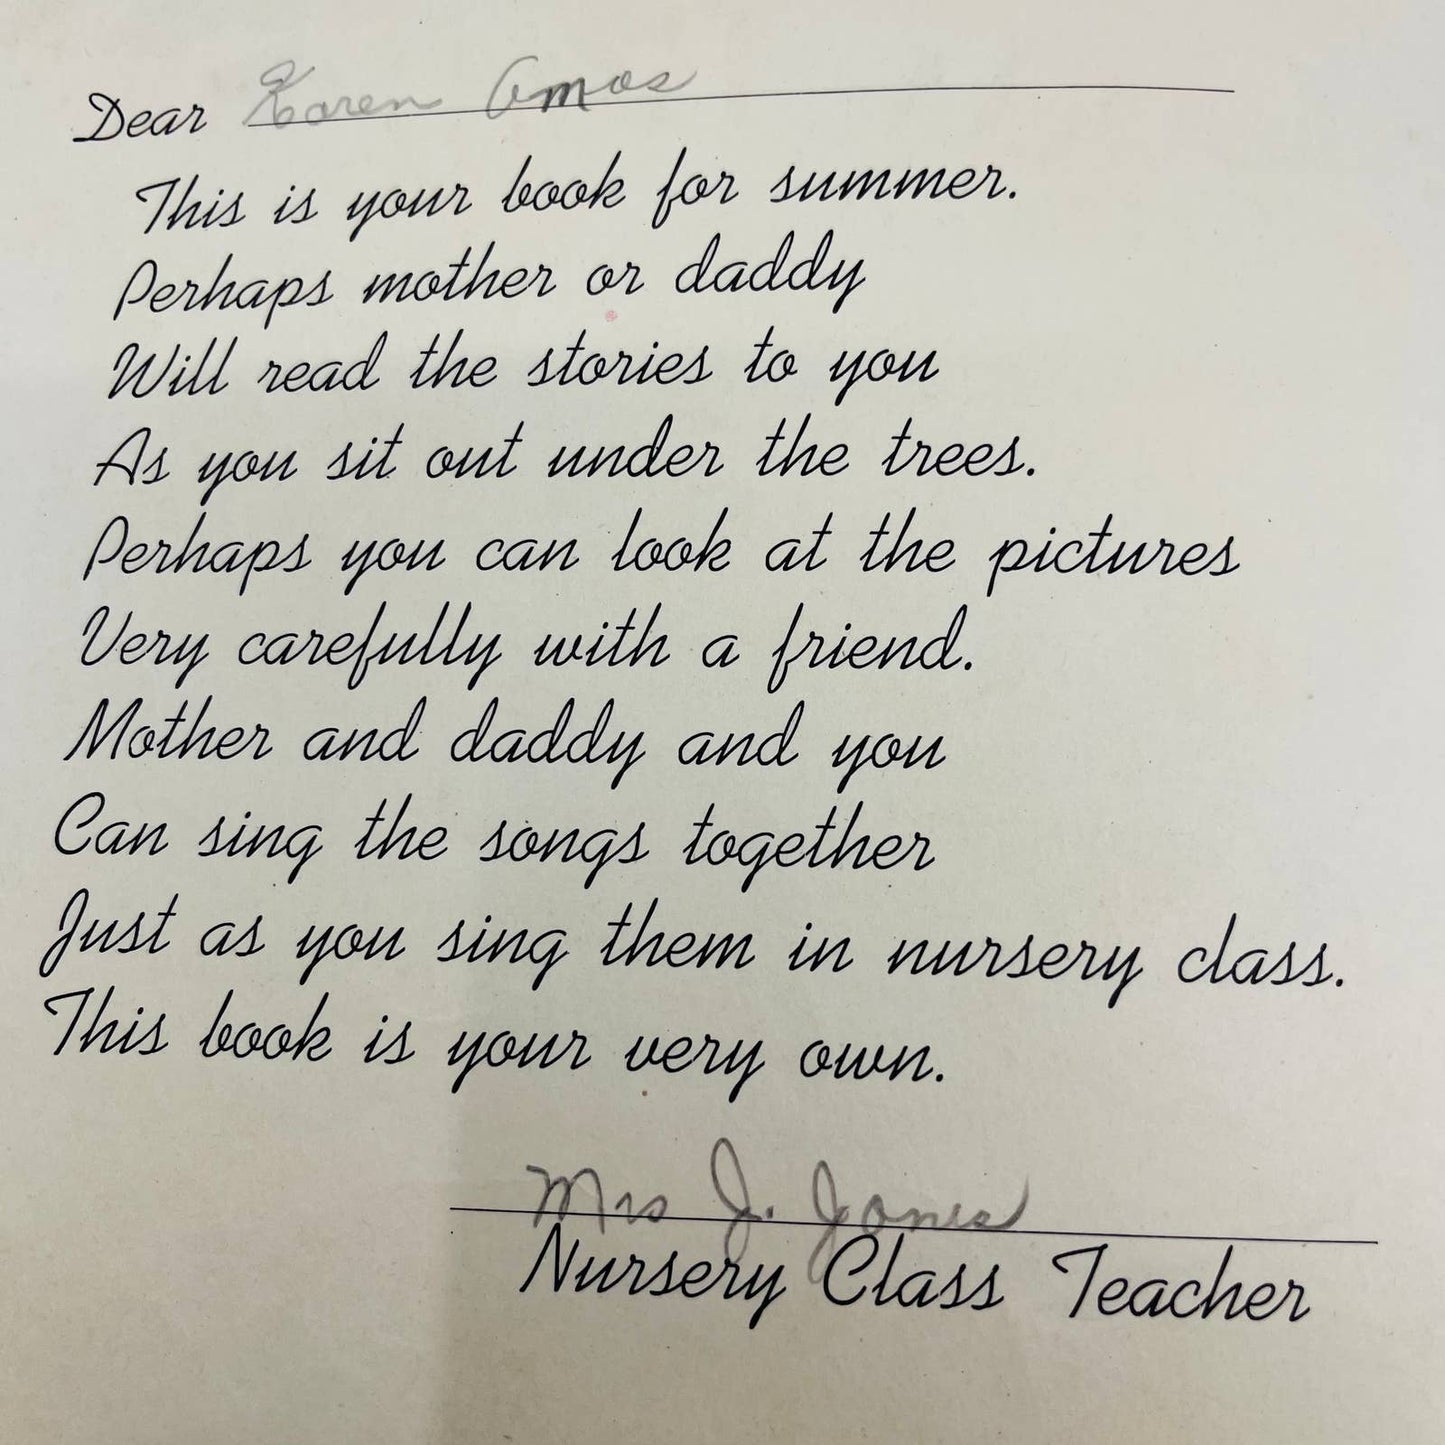 Dear Karen Amos
This is your book for summer.
Perhaps mother or daddy
Will read the stories to you
As you sit out under the trees.
Perhaps you can look at the pictures
Very carefully with a friend.
Mother and daddy and you
Can sing the songs together
Just as you sing them in nursery class.
This book is your very own.
Mrs J. Jones
Nursery Class Teacher